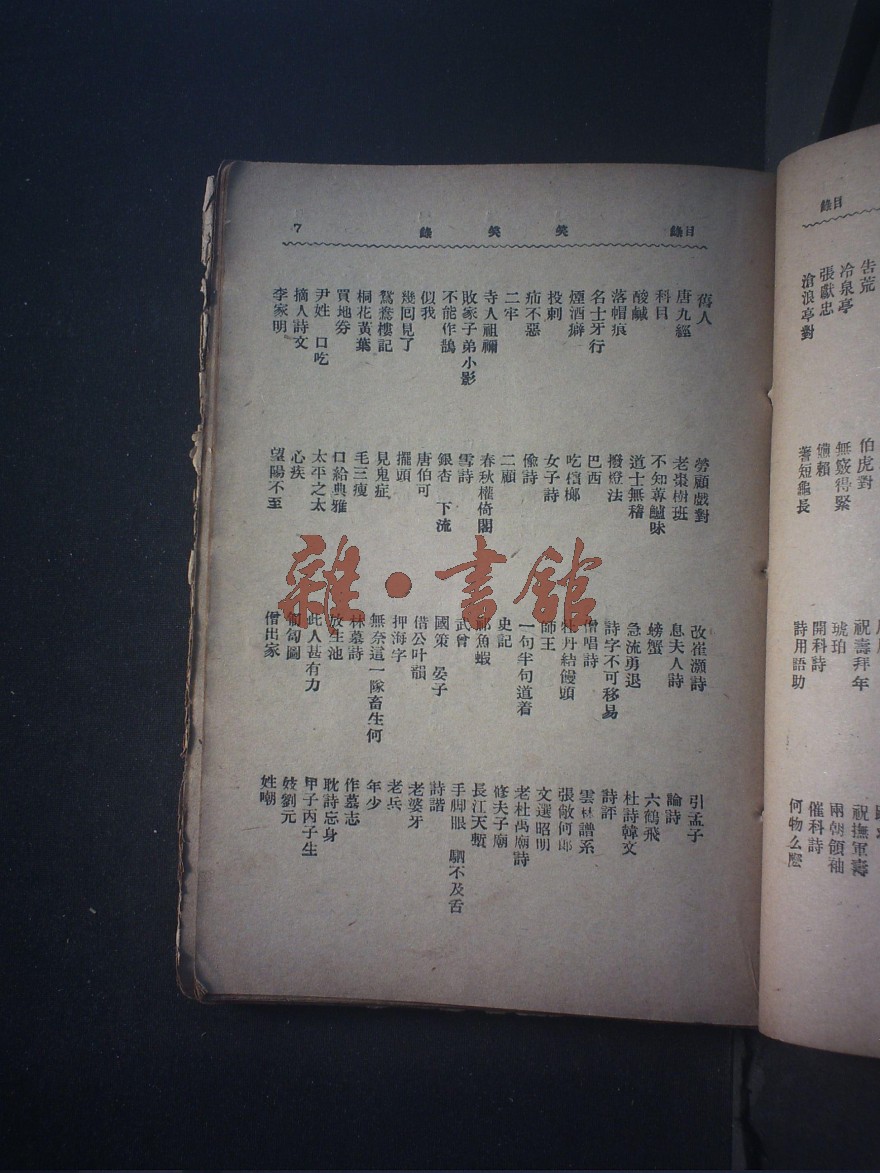 目錄
笑笑錄
7
舊人
唐九經
科目
酸鹹
落帽痕
名士牙行
煙酒癖
投刺
疥不惡
二牢
寺人祖禰
敗家子弟小影
不能作鵲
似我
幾囘見了
鴛鴦樓記
桐花黃葉
買地券
尹姓 口吃
摘人詩文
李家明
勞顧戲對
老棗樹班
不知蓴鱸味
道士無稽
撥燈法
巴西
吃檳榔
女子詩
偷詩
二顧
春秋權倚閣
雪詩
銀杏 下流
唐伯可
擺頭
見鬼症
毛三瘦
口給典雅
太平之太
心疾
望陽不至
改崔灝詩
息夫人詩
螃蟹
急流勇退
詩字不可移易
僧唱詩
牡丹結饅頭
師王
一句半句道着
史記
魚蝦
武曾
國策 晏子
借公叶韻
押海字
無奈這一隊畜生何
林墓詩
放生池
此人甚有力
匍匐圖
僧出家
引孟子
論詩
六鶴飛
杜詩韓文
詩評
雲林譜系
張敞何郎
文選昭明
老杜禹廟詩
修夫子廟
長江天塹
手脚眼 駟不及舌
詩諧
老婆牙
老兵
年少
作墓志
耽詩忘身
甲子丙子生
妓劉元
姓嘲
目錄
告荒
冷泉亭
張獻忠
滄浪亭對
伯虎對
無竅得緊
嬾賴
蓍短龜長
祝壽拜年
琥珀
開科詩
詩用語助
祝撫軍壽
兩朝領袖
催科詩
何物么麽
雜·書館